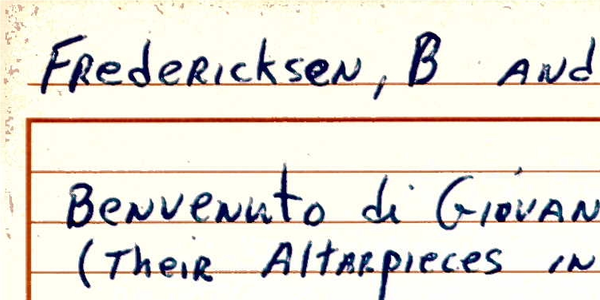 Fredericksen, B and
Benvenuto di Giovan
(Their Altarpieces in